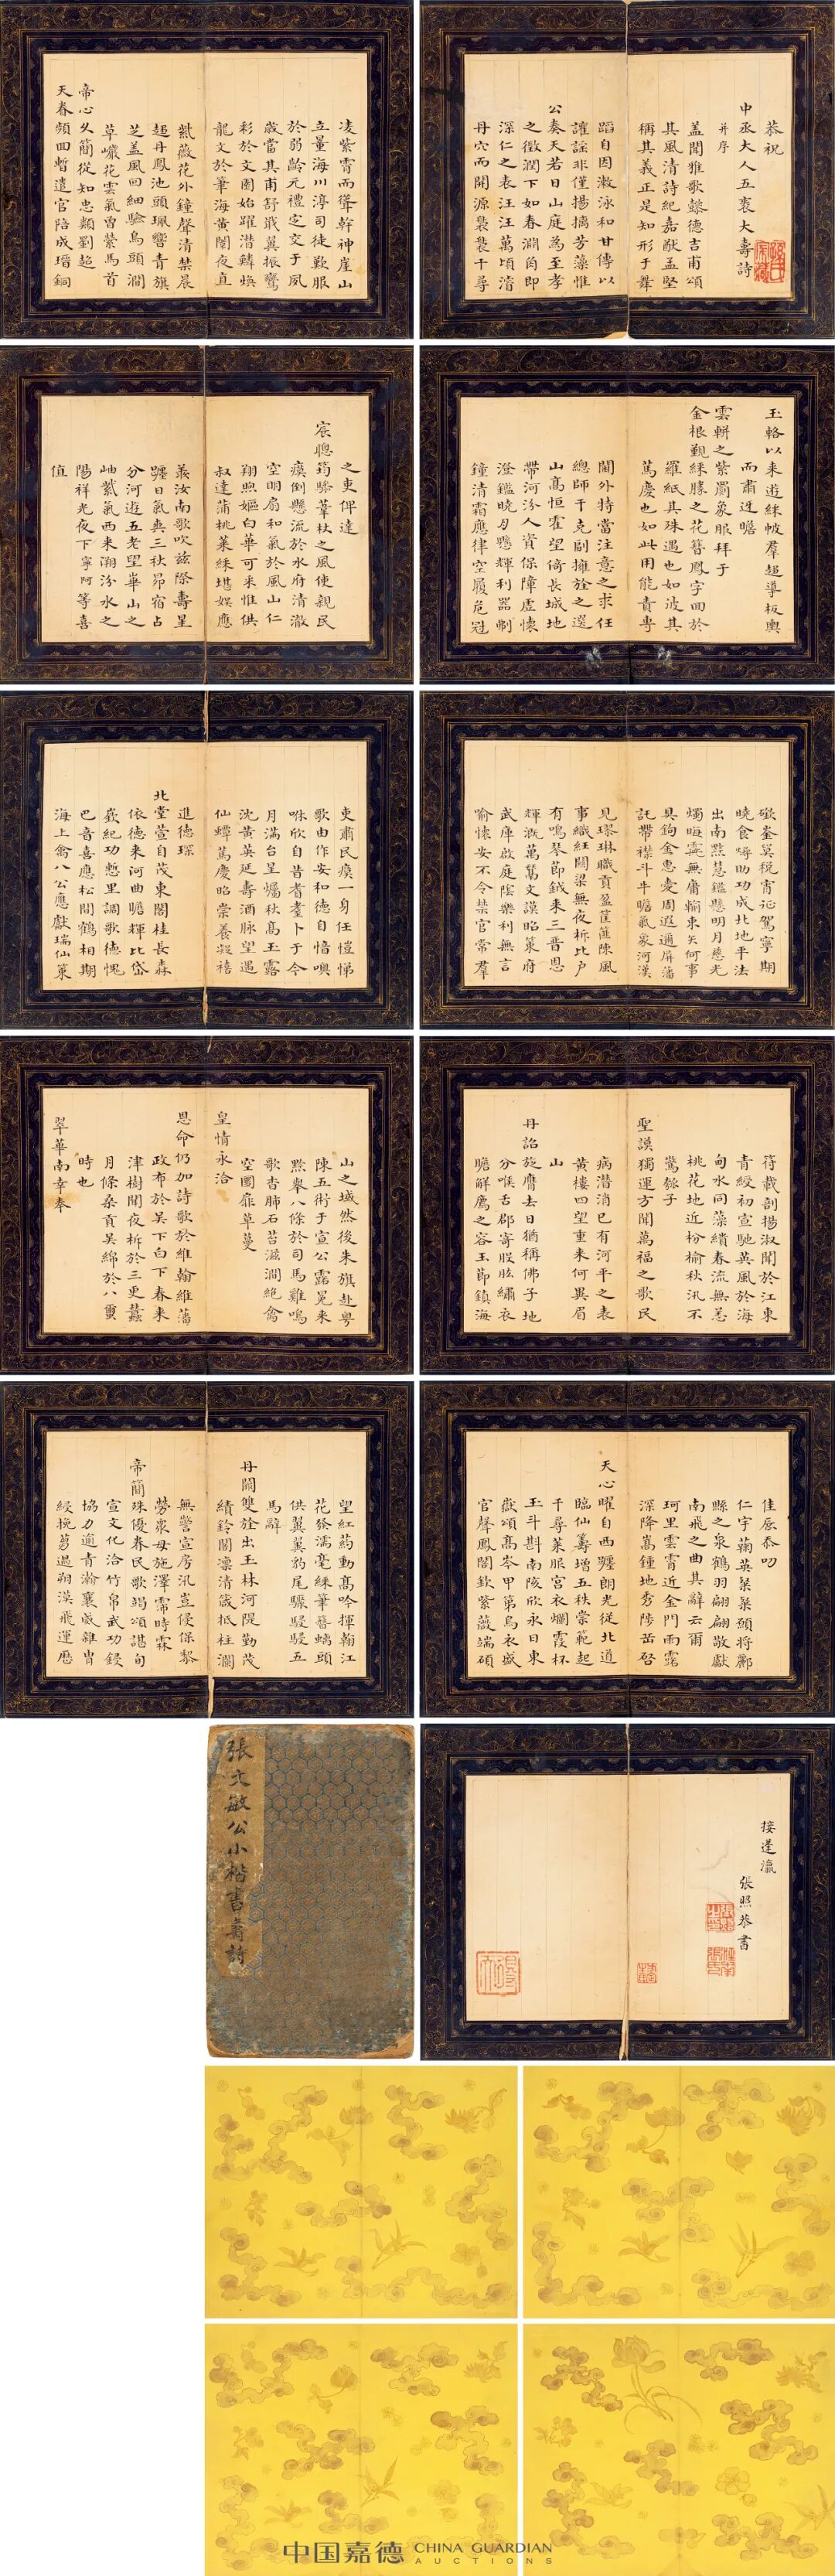 恭祝
中丞大人五袠大壽詩
并序
蓋聞雅歌懿德吉甫頌
其風清詩紀嘉猷孟堅
稱其義正是知形于舞
蹈自因漱泳和甘傳以
讙謡非僅揚摛芳藻惟
公奏天若日山庭為至孝
之徵潤下如春澗角即
深仁之表汪汪萬頃濬
丹穴而開源褧褧千尋
凌紫霄而聳幹神崖山
立量海川渟司徒歎服
於弱齡元禮定交于夙
歲當其甫舒戢翼振鸞
彩於文囿始躍潛鱗煥
龍文於筆海黃閣夜直
紫薇花外鐘聲清禁晨
趨丹鳳池頭珮響青旗
芝蓋風回細驗烏頭澗
草巖花雲氣曾縈馬首
帝心久簡從知忠顯劉超
天眷頻回暫遣官陪成瑨銅
玉輅以來遊綵帔羣趨導板輿
而肅迓瞻
雲軿之紫罽象服拜于
金根觀綵勝之花簪鳳字回於
羅紙其殊遇也如彼其
篤慶也如此用能責専
閫外持當注意之求任
總師干克副擁旌之選
山高恒霍望倚長城地
帶河汾人資保障虛懷
澄鑑曉月懸輝利器剸
鐘清霜應律空履危冠
之吏俾達
宸聰筠簵葦杖之風使親民
瘼倒懸流於水府清澈
空明扇和氣於風山仁
翔煦嫗白華可采惟供
叔達蒲桃萊綵堪娛應
義汝南歌吹兹際壽星
躔日氣爽三秋昴宿占
分河遊五老望崋山之
岫紫氣西來溯汾水之
陽祥光夜下寧阿等喜
值
曉食嘑助功成北地平法
出南㸃慧鑑懸明月慈光
燭晦霊無庸輸東矢何事
具鉤金惠愛周遐邇屏藩
託帶襟斗牛瞻氣象河漢
見璆琳職貢盈筐篚陳風
事織紝關梁無夜柝比户
有鳴琴節鉞来三晋恩
輝溉萬䔵文謨昭策府
武庫啟庭陰樂利無言
喻懷安不令禁官常羣
吏肅民瘼一身任愷悌
歌由作安和德自愔噢
咻欣自昔耆耋卜于今
月滿台星燭秋髙玉露
沈黃英延壽酒脉望遇
仙蟫篤慶昭崇養凝禧
進德琛
北堂萱自茂東閣桂長森
依德来河曲瞻輝比岱
嶔紀功慙里調歌德愧
巴音喜應松間鶴相期
海上禽八公應獻瑞仙菓
符載剖揚淑聞於江東
青綬初宣馳英風於海
甸水同藻繢春流無恙
桃花地近枌榆秋汛不
驚瓠子
聖謨獨運方聞萬福之歌民
病潛消已有河平之表
黃樓四望重来何異眉
山
丹詔旋膺去日猶稱佛子地
分喉舌郡寄股肱繡衣
瞻解廌之容玉節鎮海
山之域然後朱旗赴粤
陳五術于宣公露冕来
黔舉八條於司馬雞鳴
歌杳肺石苔滋澗絶禽
空圜扉草蔓
皇情永洽
恩命仍加詩歌於維翰維藩
政布於吴下白下春来
津樹聞夜柝於三更蠶
月條桑貢吴綿於八蠒
時也
翠華南幸奉
佳辰忝叨
仁宇蘜英槃槃願将酈
縣之泉鶴羽翩翩敬獻
南飛之曲其辭云爾
珂里雲霄近金門雨露
深降嵩鍾地秀陟岳啓
天心曜自西躔朗光從北道
臨仙籌增五秩崇範起
千尋萊服宫衣爛霞杯
玉斗斟南陔欣永日東
嶽頌髙岑甲第烏衣盛
官聲鳳閣欽紫薇端碩
望紅葯動髙吟揮翰江
花發濡毫綵筆簪螭頭
供翼翼豹尾驟駸駸五
馬辭
丹闕雙旌出玉林河隄勤茂
績鈴閣凛清箴抵柱瀾
無警宣房汛豈侵保黎
勞衆母施澤霈時霖
帝簡殊優眷民歌竭頌諶旬
宣文化洽竹帛武功鋟
協力逾青瀚襄威雜胄
綅挽芻過朔漠飛運歷
接蓬瀛
張照恭書
張文敏公小楷書壽詩
中国嘉德 CHINA GUARDIAN
AUCTIONS